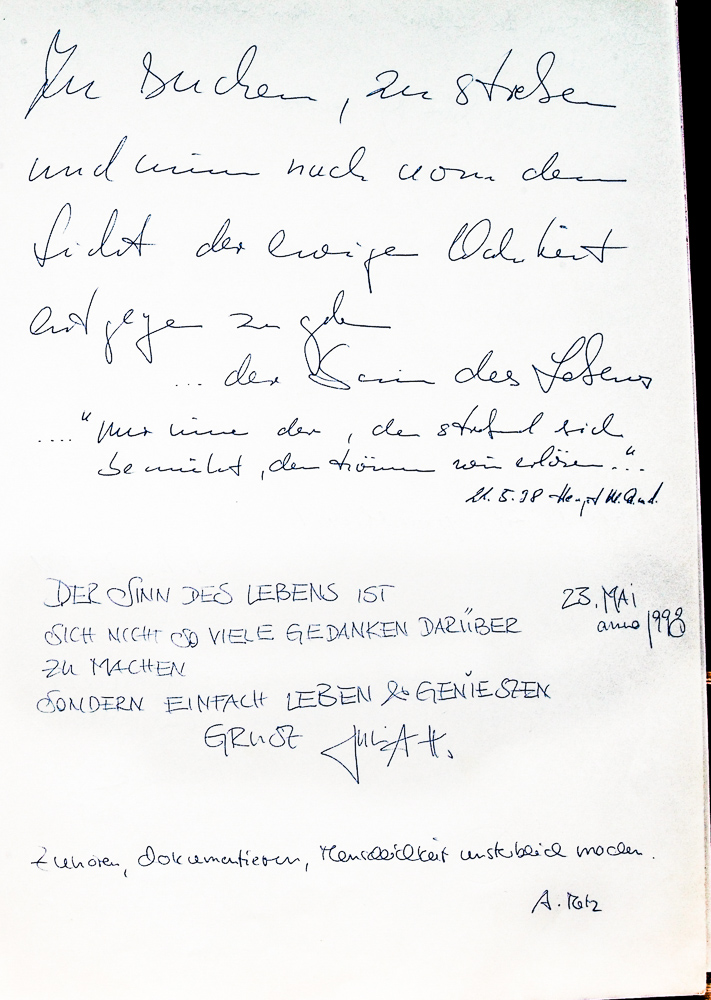 Zu suchen, zu streben
und immer nach vorn dem
Licht der ewigen Wahrheit
entgegen zu gehn
... der Sinn des Lebens
...." Nur immer der, der strebend sich
bemüht, den können wir erlösen."..
21. 5. 98
DER SINN DES LEBENS IST
23. MAI
SICH NICHT SO VIELE GEDANKEN DARÜBER
anno 1998
ZU MACHEN
SONDERN EINFACH LEBEN & GENIESZEN
GRUSZ JULIA H.
Zuhören, Dokumentieren, Menschlichkeit unsterblich machen.
A.